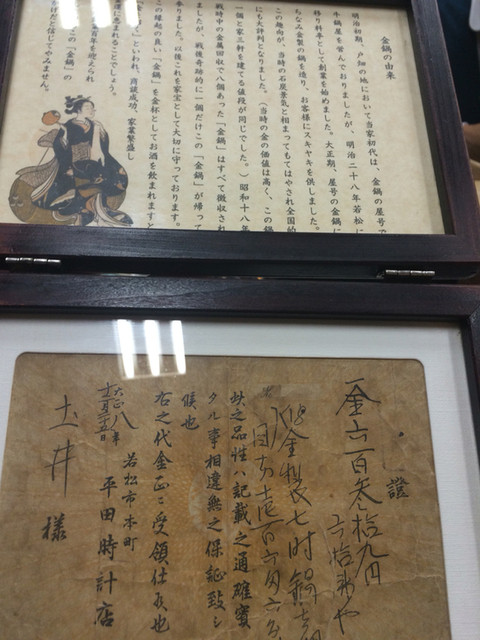 金鍋の由来
明治初期、戸畑の地において当家初代は、金鍋の屋号で
牛鍋屋を営んでおりましたが、明治二十八年若松に
移り料亭として創業を始めました。大正期、屋号の金鍋に
ちなみ金製の鍋を造り、お客様にスキヤキを供しました。
この趣向が、当時の石炭景気と相まってもてはやされ全国的
にも大評判となりました。（当時の金の価値は高く、この鍋
一個と家三軒を建てる値段が同じでした。）昭和十八年
戦時中の金属回収で八個あった「金鍋」はすべて徴収され
ましたが、戦後奇跡的に一個だけこの「金鍋」が帰って
参りました。以後これを家宝として大切に守っております。
この縁起の良い「金鍋」を金杯としてお酒を飲まれますと
といわれ、商談成功、家業繁盛し
に恵まれることでしょう。
百年を迎えられ
この「金鍋」の
だと信じてやみません。
證
一金六百参拾九円
六拾
此之品性ハ記載之通確實
タル事相違無之保証致シ
候也
右之代金正ニ受領仕候也
大正八年
十一月二五日
若松市本町
平田時計店
土井様